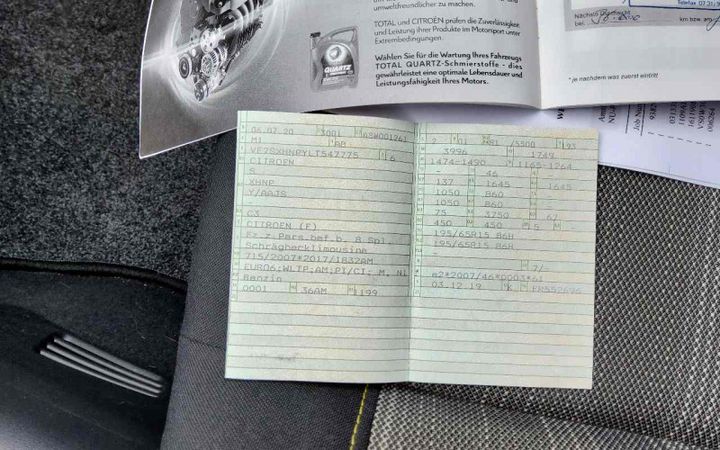 umweltfreundlicher zu machen.
TOTAL und CITROËN prüfen die Zuverlässigkeit
und Leistung ihrer Produkte im Motorsport unter
Extrembedingungen.
Wählen Sie für die Wartung Ihres Fahrzeugs
TOTAL QUARTZ-Schmierstoffe - dies
gewährleistet eine optimale Lebensdauer und
Leistungsfähigkeit Ihres Motors.
QUARTZ
Telefax 07.31/
bei
km bzw. am
* je nachdem was zuerst eintritt
06.07.20 3001
M1 AB
6
CITROEN
S
XHNP
Y/AAJS
C3
CITROEN (F)
Fz.z.Pers.bef.b. 8 Spl.
Schräghecklimousine
715/2007*2017/1832AM
EURO6;WLTP;AM;PI/CI; M, N1
Benzin
0001 36AM 1199
2 01 5500 193
3996 1749
1474-1490 1165-1264
- 46 -
137 1645 1645
1050 860 -
1050 860 -
75 3750 67
450 450 5 -
195/65R15 86H
195/65R15 86H
-
7/-
e2*2007/46*0003*61
03.12.19 K